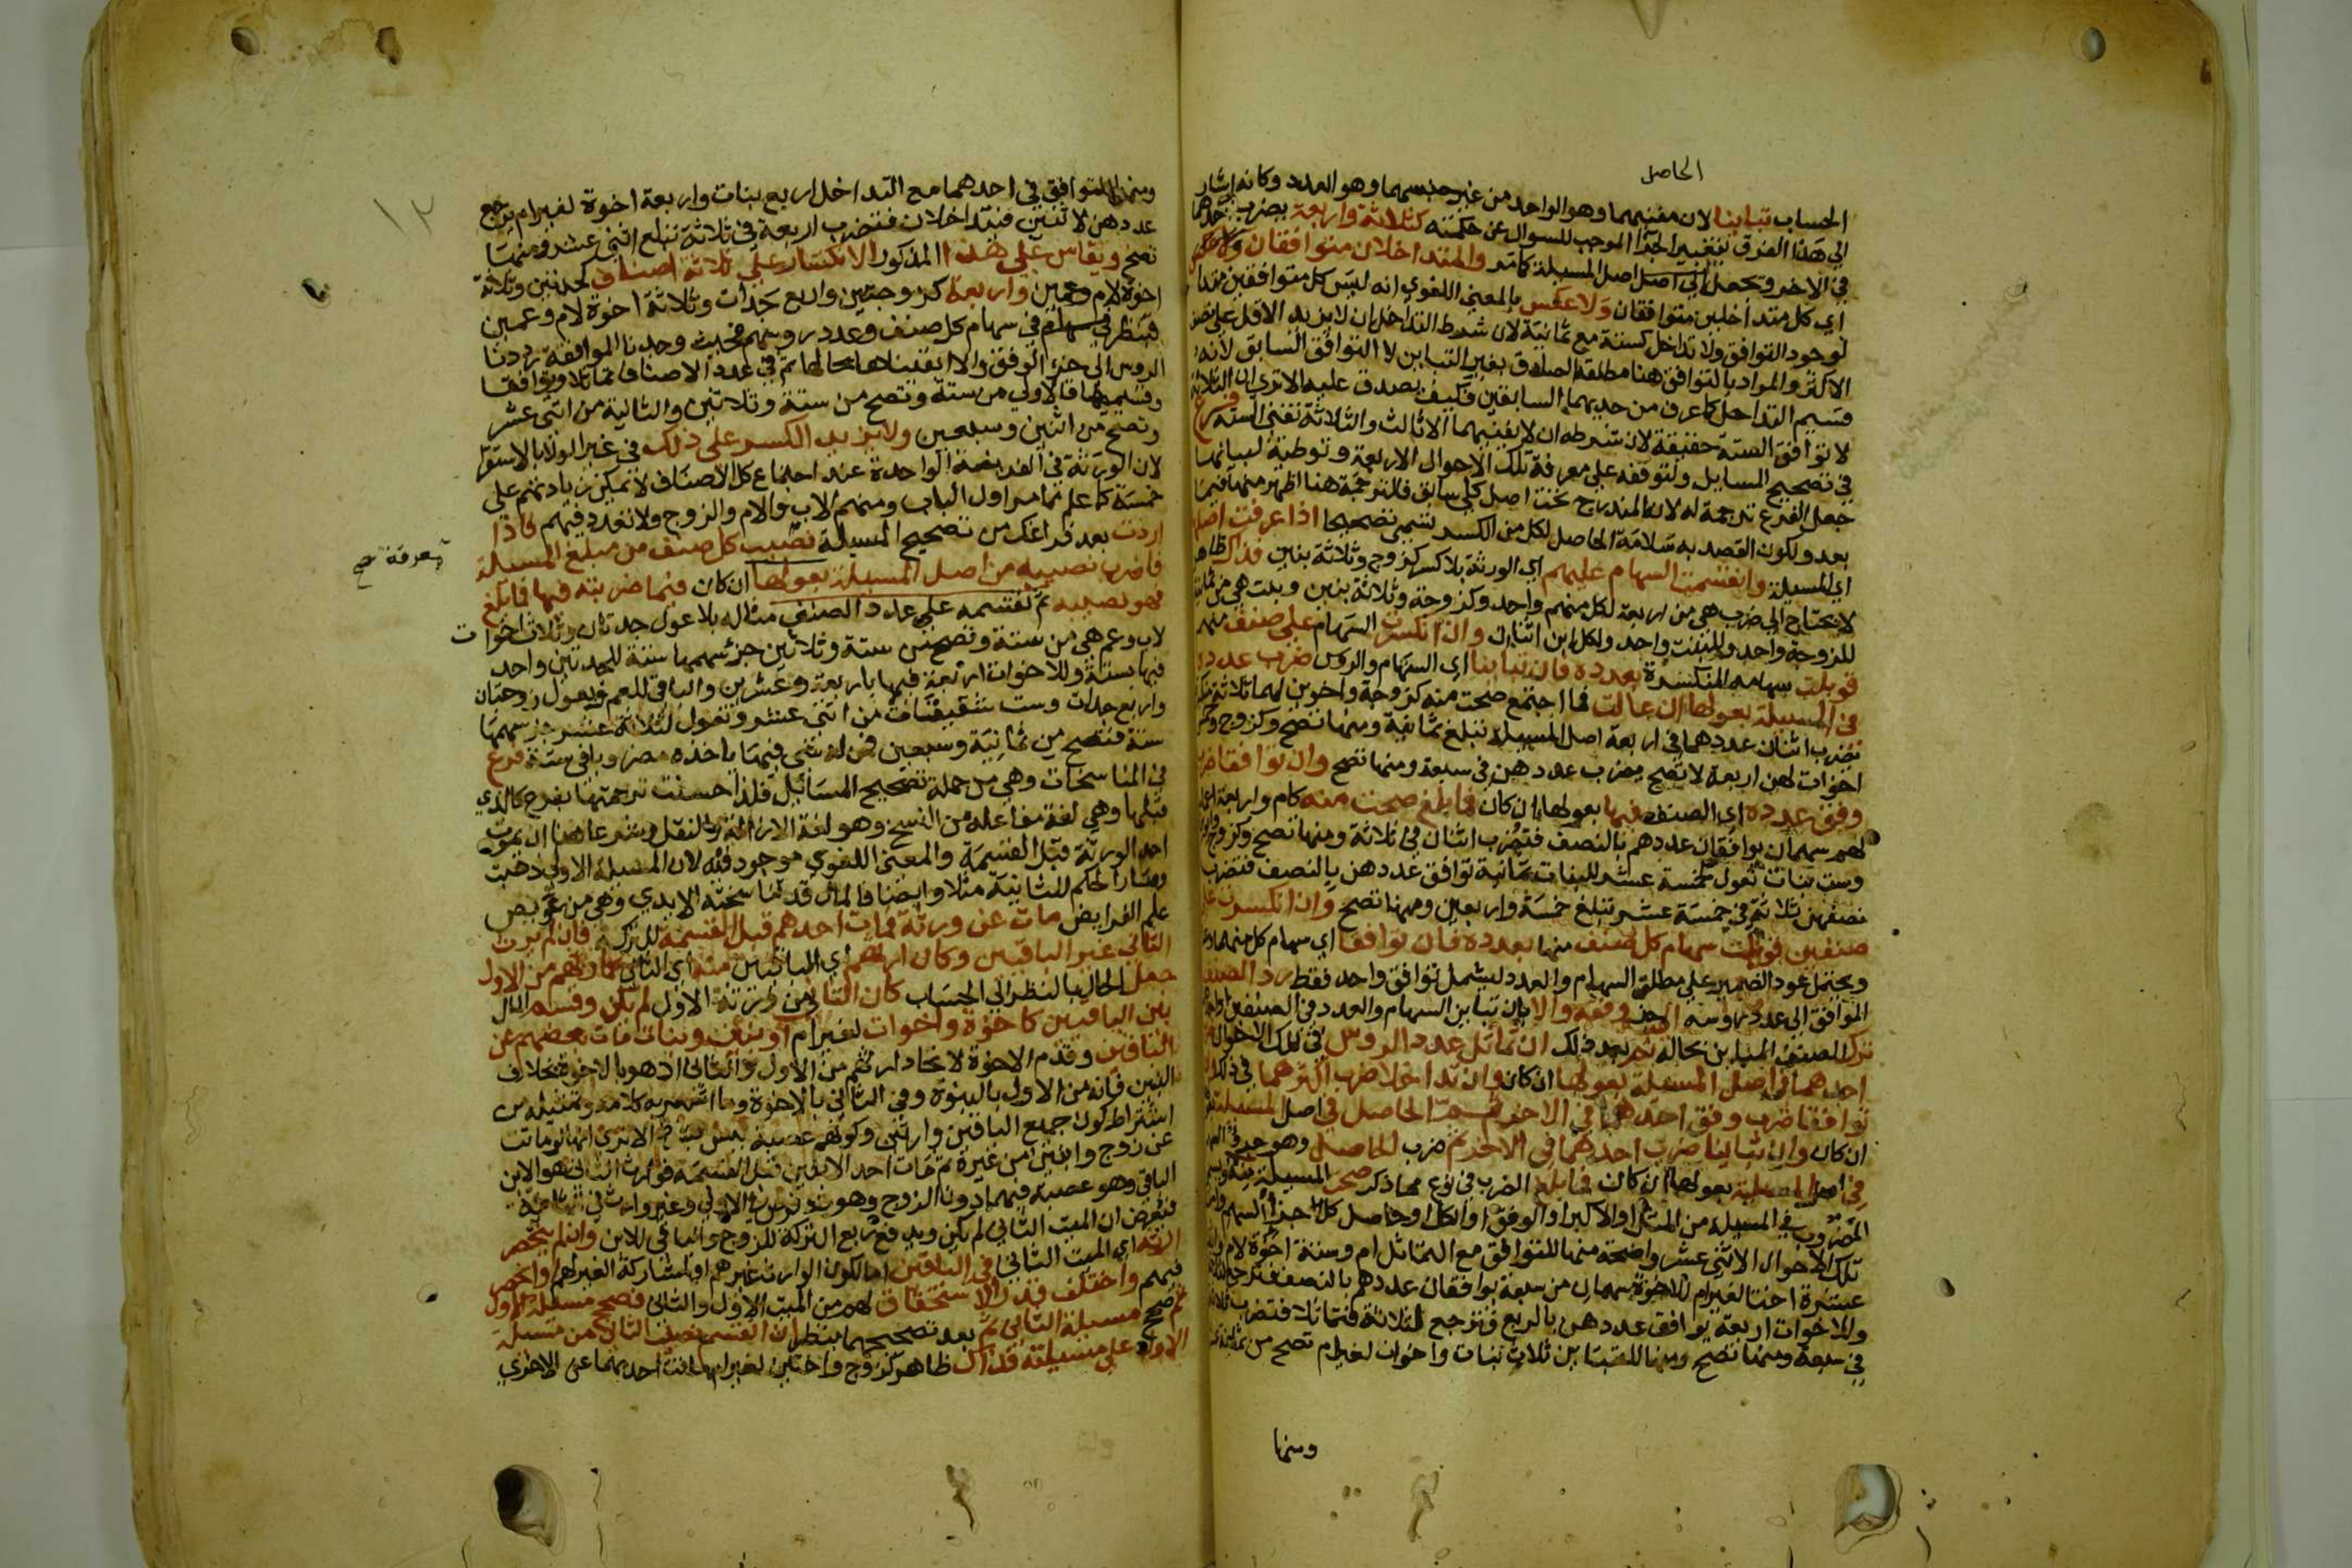 الحاصل
الحساب تباينا لان مفنيهما وهو الواحد من غير جنسهما وهو العدد وكانه اشار
الى هذا الفرق بتغيير الموجب للسوال عن حكمته كثلاثة واربعة بضرب احدهما
في الاخر وتحصل الى اصل اصل المسيلة كما مر والمتداخلان متوافقان ولا عكس
اي كل متداخلين متوافقان ولا عكس بالمعنى اللغوي انه ليس كل متوافقين متداخلين
لوجود التوافق ولا تداخل كستة مع ثمانية لان شرط التداخل ان لا يزيد الاقل على نصف
الاكثر والمراد بالتوافق هنا مطلقه الصادق بغير التباين لا التوافق السابق لانه
قسيم التداخل كما عرف من حديهما السابقين فكيف يصدق عليه الا ترى ان الثلاثة
لا توافق الستة حقيقة لان شرطه ان لا يفنيهما الا ثالث والثلاثة تفني الستة فرع
في تصحيح المسايل ولتوقفه على معرفة تلك الاحوال الاربعة وتوطية لبيانها
جعل الفرع ترجمة له لان المندرج تحت اصل كلي سابق فالترجمة هنا اظهر منها فيما
بعد ولكون القصد به سلامة الحاصل لكل من الكسر سمي تصحيحا اذا عرفت اصلها
اي المسيلة وانقسمت السهام عليهم اي الورثة بلا كسر كزوج وثلاثة بنين فذاك ظاهر
لا يحتاج الى ضرب هي من اربعة لكل منهم واحد وكزوجة وثلاثة بنين وبنت هي من ثمانية
للزوجة واحد وللبنت واحد ولكل ابن اثنان وان انكسرت السهام على صنف منهم
قوبلت سهامه المنكسرة بعدده فان تباينا اي السهام والروس ضرب عدده
في المسيلة بعولها ان عالت فما اجتمع صحت منه كزوجة واخوين لهما ثلاثة منكسرة
يضرب اثنان عددهما في اربعة اصل المسيلة تبلغ ثمانية ومنها تصح وكزوج وخمس
اخوات لهن اربعة لا تصح يضرب عددهن في سبعة ومنها تصح وان توافقا ضرب
وفق عدده اي الصنف فيها بعولها ان كان فما بلغ صحت منه كام واربعة اعمام
لهم سهمان يوافقان عددهم بالنصف فتضرب اثنان في ثلاثة ومنها تصح وكزوج وابوين
وست بنات تعول لخمسة عشر للبنات ثمانية توافق عددهن بالنصف فتضرب
نصفهن ثلاثة في خمسة عشر تبلغ خمسة واربعين ومنها تصح وان انكسرت على
صنفين قوبلت سهام كل صنف منها بعدده فان توافقا اي سهام كل منهما وعدده
ويحتمل عود الضمير على مطلق السهام والعدد ليشمل توافق واحد فقط رد الصنف
الموافق الى عدد روسه الى جزء وفقه والا بان تباين السهام والعدد في الصنفين او احدهما
ترك الصنف المباين بحاله ثم بعد ذلك ان تماثل عدد الروس في تلك الاحوال ضرب
احدهما في اصل المسيلة بعولها ان كان وان تداخلا ضرب اكثرهما في ذلك وان
توافقا ضرب وفق احدهما في الاخر ثم الحاصل في اصل المسيلة بعولها
ان كان وان تباينا ضرب احدهما في الاخر ثم ضرب الحاصل وهو جزء السهم
في اصل المسيلة بعولها ان كان فما بلغ الضرب في نوع مما ذكر صحت المسيلة منه ويسمى
المضروب في المسيلة من المثل او الاكبر او الوفق او الكل او حاصل كل جزء السهم وامثلة
تلك الاحوال الاثني عشر واضحة منها للتوافق مع التماثل ام وستة اخوة لام واثنتا
عشرة اختا لغير ام للاخوة سهمان من سبعة يوافقان عددهم بالنصف فترجع لثلاثة
وللاخوات اربعة يوافق عددهن بالربع فترجع لثلاثة فتماثلا فتضرب ثلاثة
في سبعة ومنها تصح ومنها للتباين ثلاث بنات واخوان لغير ام تصح من ثمانية عشر
ومنها
١٢
ومنها للتوافق في احدهما مع التداخل اربع بنات واربعة اخوة لغير ام يرجع
عددهن لاثنين فيتداخلان فتضرب اربعة في ثلاثة تبلغ اثني عشر ومنها
تصح ويقاس على هذا المذكور الانكسار على ثلاثة اصناف كجدتين وثلاثة
اخوة لام وعمين واربعة كزوجتين واربع جدات وثلاثة اخوة لام وعمين
فينظر في سهام كل صنف وعدد روسهم فحيث وجدنا الموافقة رددنا
الروس الى جزء الوفق والا ابقيناها بحالها ثم في عدد الاصناف تماثلا وتوافقا
وقسيميهما فالاولى من ستة وتصح من ستة وثلاثين والثانية من اثنى عشر
وتصح من اثنين وسبعين ولا يزيد الكسر على ذلك في غير الولا بالاستقرا
لان الورثة في الفريضة الواحدة عند اجتماع كل الاصناف لا يمكن زيادتهم على
خمسة كما علم مما مر اول الباب ومنهم الاب والام والزوج ولا تعدد فيهم فاذا
اردت بعد فراغك من تصحيح المسيلة نصيب كل صنف من مبلغ المسيلة
معرفة صح
فاضرب نصيبه من اصل المسيلة بعولها ان كان فيما ضربته فيها فما بلغ
فهو نصيبه ثم تقسمه على عدد الصنف مثاله بلا عول جدتان وثلاث اخوات
لاب وعم هي من ستة وتصح من ستة وثلاثين جزء سهمها ستة للجدتين واحد
فيها بستة وللاخوات اربعة فيها باربعة وعشرين والباقي للعم وبعول زوجتان
واربع جدات وست شقيقات من اثنى عشر وتعول لثلاثة عشر جزء سهمها
ستة فتصح من ثمانية وسبعين فمن له شي فيها ياخذه مضروبا في ستة فرع
في المناسخات وهي من جملة تصحيح المسائل فلذا حسنت ترجمتها بفرع كالذي
قبلها وهي لغة مفاعلة من النسخ وهو لغة الازالة والنقل وشرعا هنا ان يموت
احد الورثة قبل القسمة والمعنى اللغوي موجود فيه لان المسيلة الاولى ذهبت
وصار الحكم للثانية مثلا وايضا فالمال قد تناسخته الايدي وهي من عويص
علم الفرايض مات عن ورثة فمات احدهم قبل القسمة للتركة فان لم يرث
الثاني غير الباقين وكان ارثهم اي الباقين منه اي الثاني كارثهم من الاول
جعل الحال بالنظر الى الحساب كان الثاني من ورثة الاول لم يكن وقسم المال
بين الباقين كاخوة واخوات لغير ام او بنين وبنات مات بعضهم عن
الباقين وقدم الاخوة لاتحاد ارثهم من الاول والثاني اذ هو بالاخوة بخلاف
البنين فانه من الاول بالبنوة وفي الثاني بالاخوة وما اشعر به كلامه وتمثيله من
اشتراط كون جميع الباقين وارثين وكونهم عصبة ليس بشرط الا ترى انها لو ماتت
عن زوج وابنين من غيره ثم مات احد الابنين قبل القسمة فوارث الثاني هو الابن
الباقي وهو عصبة فيهما دون الزوج وهو ذو فرض في الاولى وغير وارث في الثانية
فيفرض ان الميت الثاني لم يكن ويدفع ربع التركة للزوج والباقي للابن وان لم ينحصر
ارثه اي الميت الثاني في الباقين اما لكون الوارث غيرهم او لمشاركة الغير لهم او انحصر
فيهم واختلف قدر الاستحقاق لهم من الميت الاول والثاني فصحح مسيلة الاول
ثم صحح مسيلة الثاني ثم بعد تصحيحهما ينظر ان انقسم نصيب الثاني من مسيلة
الاول على مسيلته فذاك ظاهر كزوج واختين لغير ام ماتت احديهما عن الاخرى